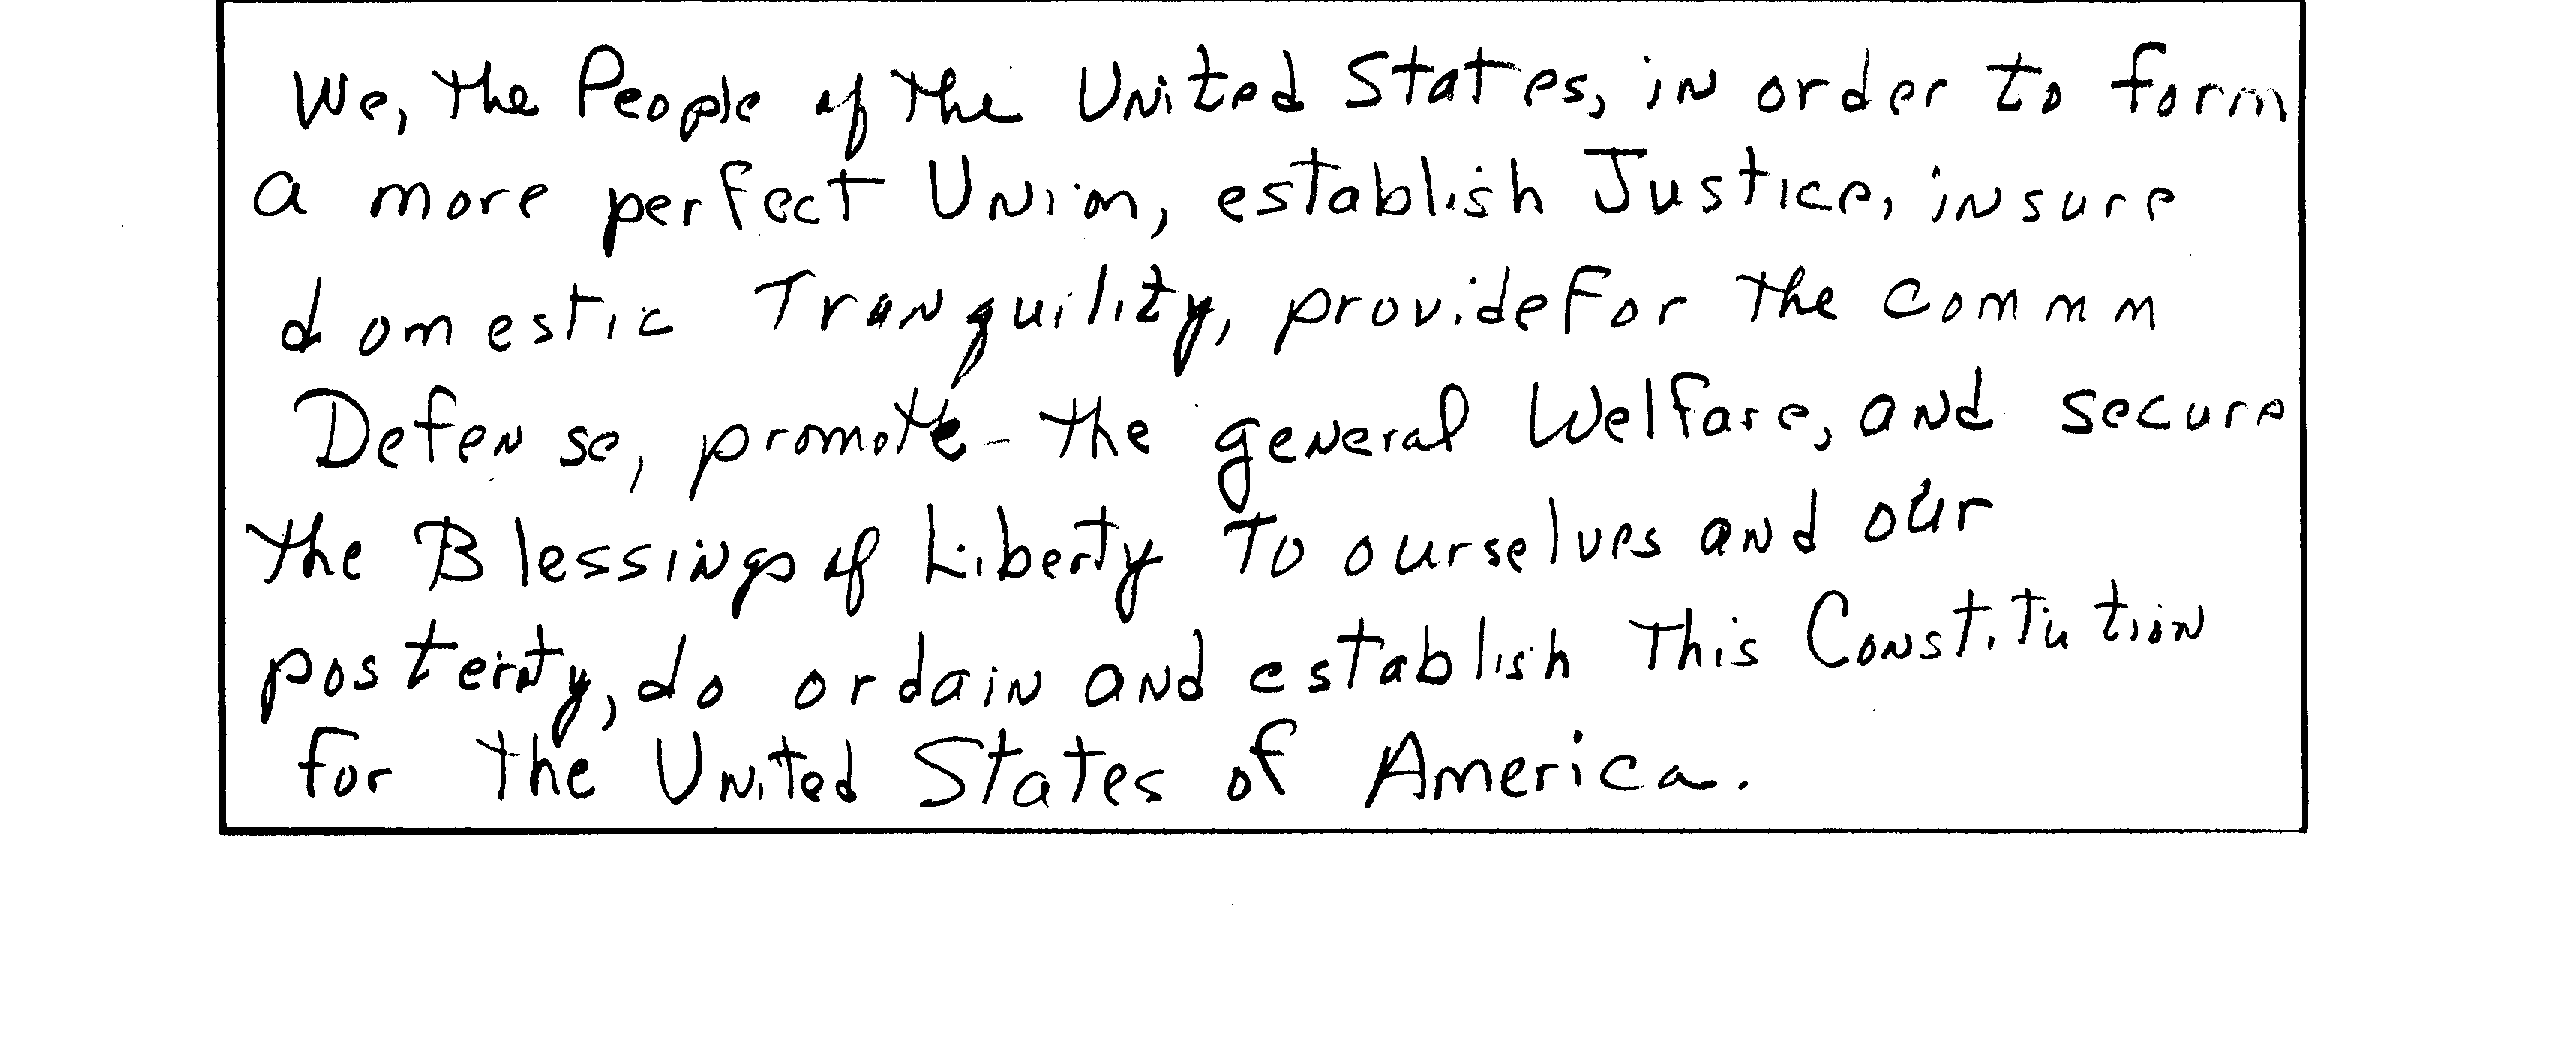 We, the People of the United States, in order to form
a more perfect Union, establish Justice, insure
domestic Tranquility, provide for the common
Defense, promote the general Welfare, and secure
the Blessings of Liberty to ourselves and our
posterity, do ordain and establish This Constitution
for the United States of America.